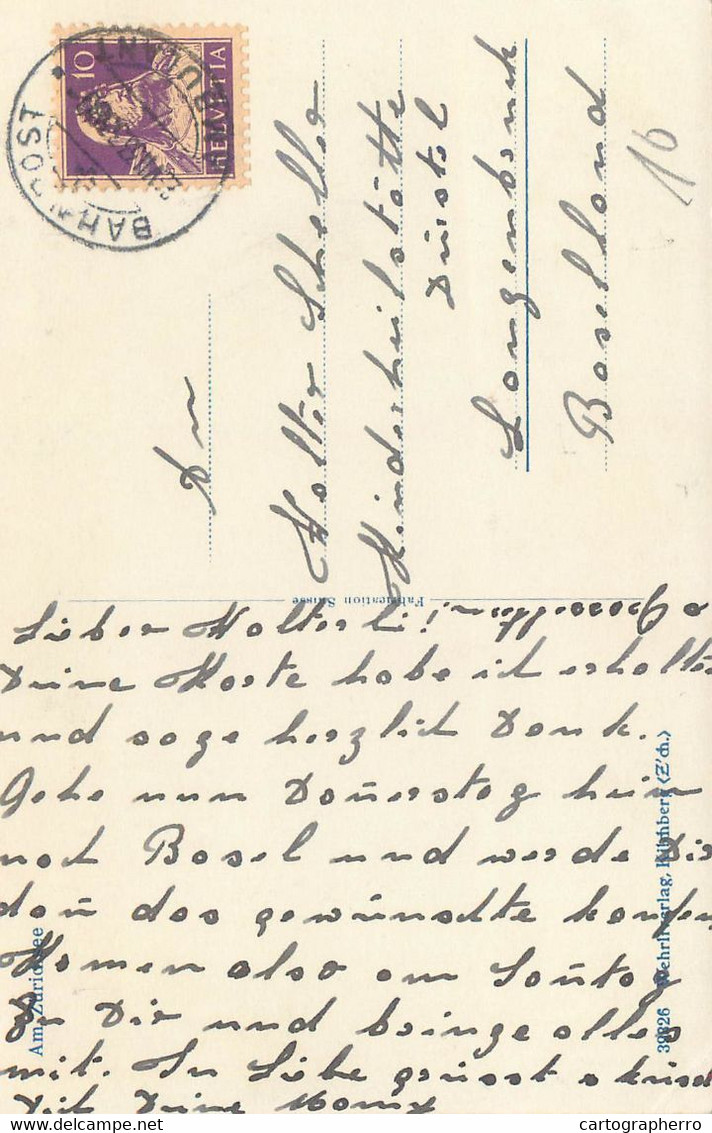 10
HELVETIA
BAHNPOST
AMBULANT
10
An
Walter Scheller
Kinderheilstätte
Langenbruck
Baselland
Fabrication Suisse
Lieber Walterli!
Deine Karte habe ich erhalten
und sage herzlich Dank.
Gehe nun Donnerstag heim
nach Basel und werde Dir
dann das gewünschte kaufen
Komen also am Sontag
zu Dir und bringe alles
mit. In Liebe grüsst & küsst
Dich Deine Mama
Am Zürichsee
39826 Wehrliverlag, Kilchberg (Z'ch.)
cartographerro